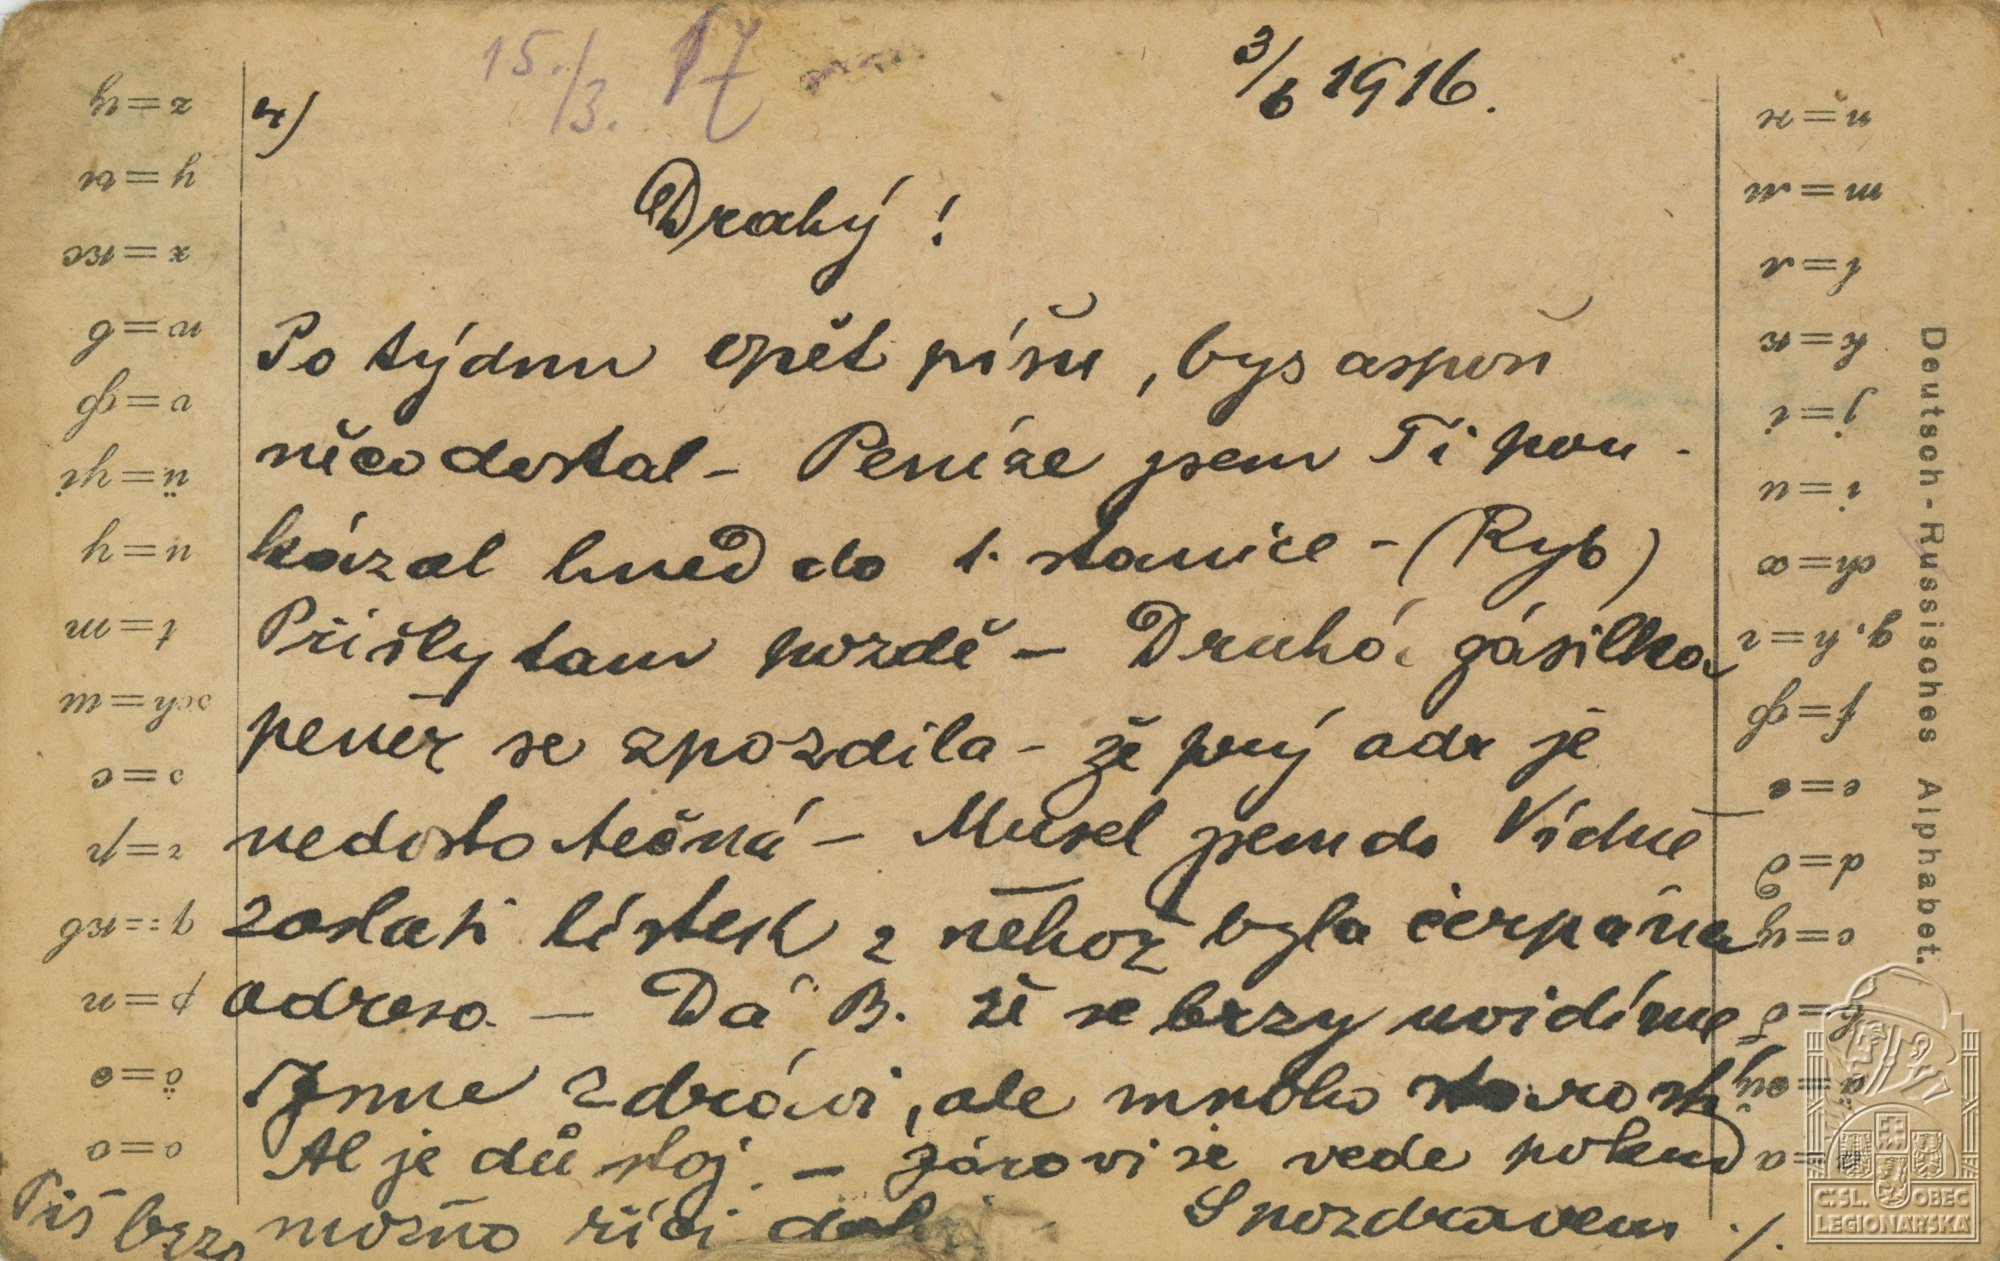 15./3. 17
3/6 1916.
4)
Drahý!
Po týdnu opět píšu, bys aspoň
něco dostal - Peníze jsem Ti pou-
kázal hned do 1. stanice - (Ryb)
Přišly tam pozdě - Druhá zásilka
peněz se zpozdila - že prý adr je
nedostatečná - Musel jsem do Vídně
zaslati lístek z něhož byla čerpána
adresa. - Dá B. že se brzy uvidíme
Jsme zdrávi, ale mnoho starostí.
Al je důstoj. - se vede pokud
možno říci
S pozdravem
Piš brzo
z=ц
y=ы
x=кс
g=и
v=ф
ü=ьи
u=ы
t=т
s=с
r=р
q=кв
p=п
ö=ө
o=о
n=н
m=м
l=л
k=к
j=i
i=и
ch=х
g, h=г
f=ф
e=е
d=д
c=ц
b=б
ä=
a=а
Deutsch-Russisches Alphabet.
ČSL. OBEC
LEGIONÁŘSKÁ